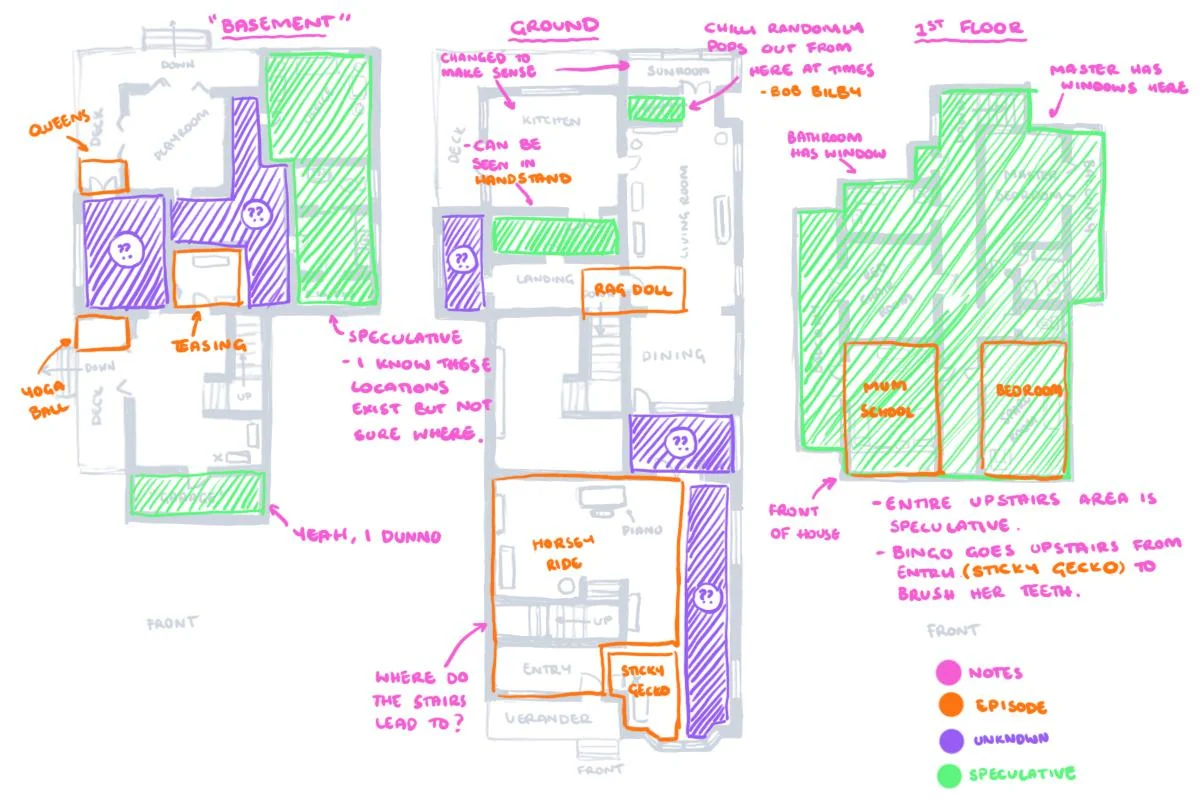 "BASEMENT"
DOWN
QUEENS
DECK
PLAYROOM
??
??
TEASING
YOGA
BALL
DOWN
DECK
UP
X
GARAGE
SPECULATIVE
- I KNOW THESE
LOCATIONS
EXIST BUT NOT
SURE WHERE.
YEAH, I DUNNO
FRONT
GROUND
CHANGED TO
MAKE SENSE
SUNROOM
CHILLI RANDOMLY
POPS OUT FROM
HERE AT TIMES
- BOB BILBY
KITCHEN
DECK
- CAN BE
SEEN IN
HANDSTAND
LIVING ROOM
??
LANDING
RAG DOLL
DINING
??
PIANO
HORSEY
RIDE
??
UP
ENTRY
STICKY
GECKO
WHERE DO
THE STAIRS
LEAD TO?
VERANDER
FRONT
1ST FLOOR
MASTER HAS
WINDOWS HERE
BATHROOM
HAS WINDOW
MASTER
BEDROOM
BALCONY
MUM
SCHOOL
BEDROOM
FRONT
OF HOUSE
- ENTIRE UPSTAIRS AREA IS
SPECULATIVE.
- BINGO GOES UPSTAIRS FROM
ENTRY (STICKY GECKO) TO
BRUSH HER TEETH.
FRONT
NOTES
EPISODE
UNKNOWN
SPECULATIVE